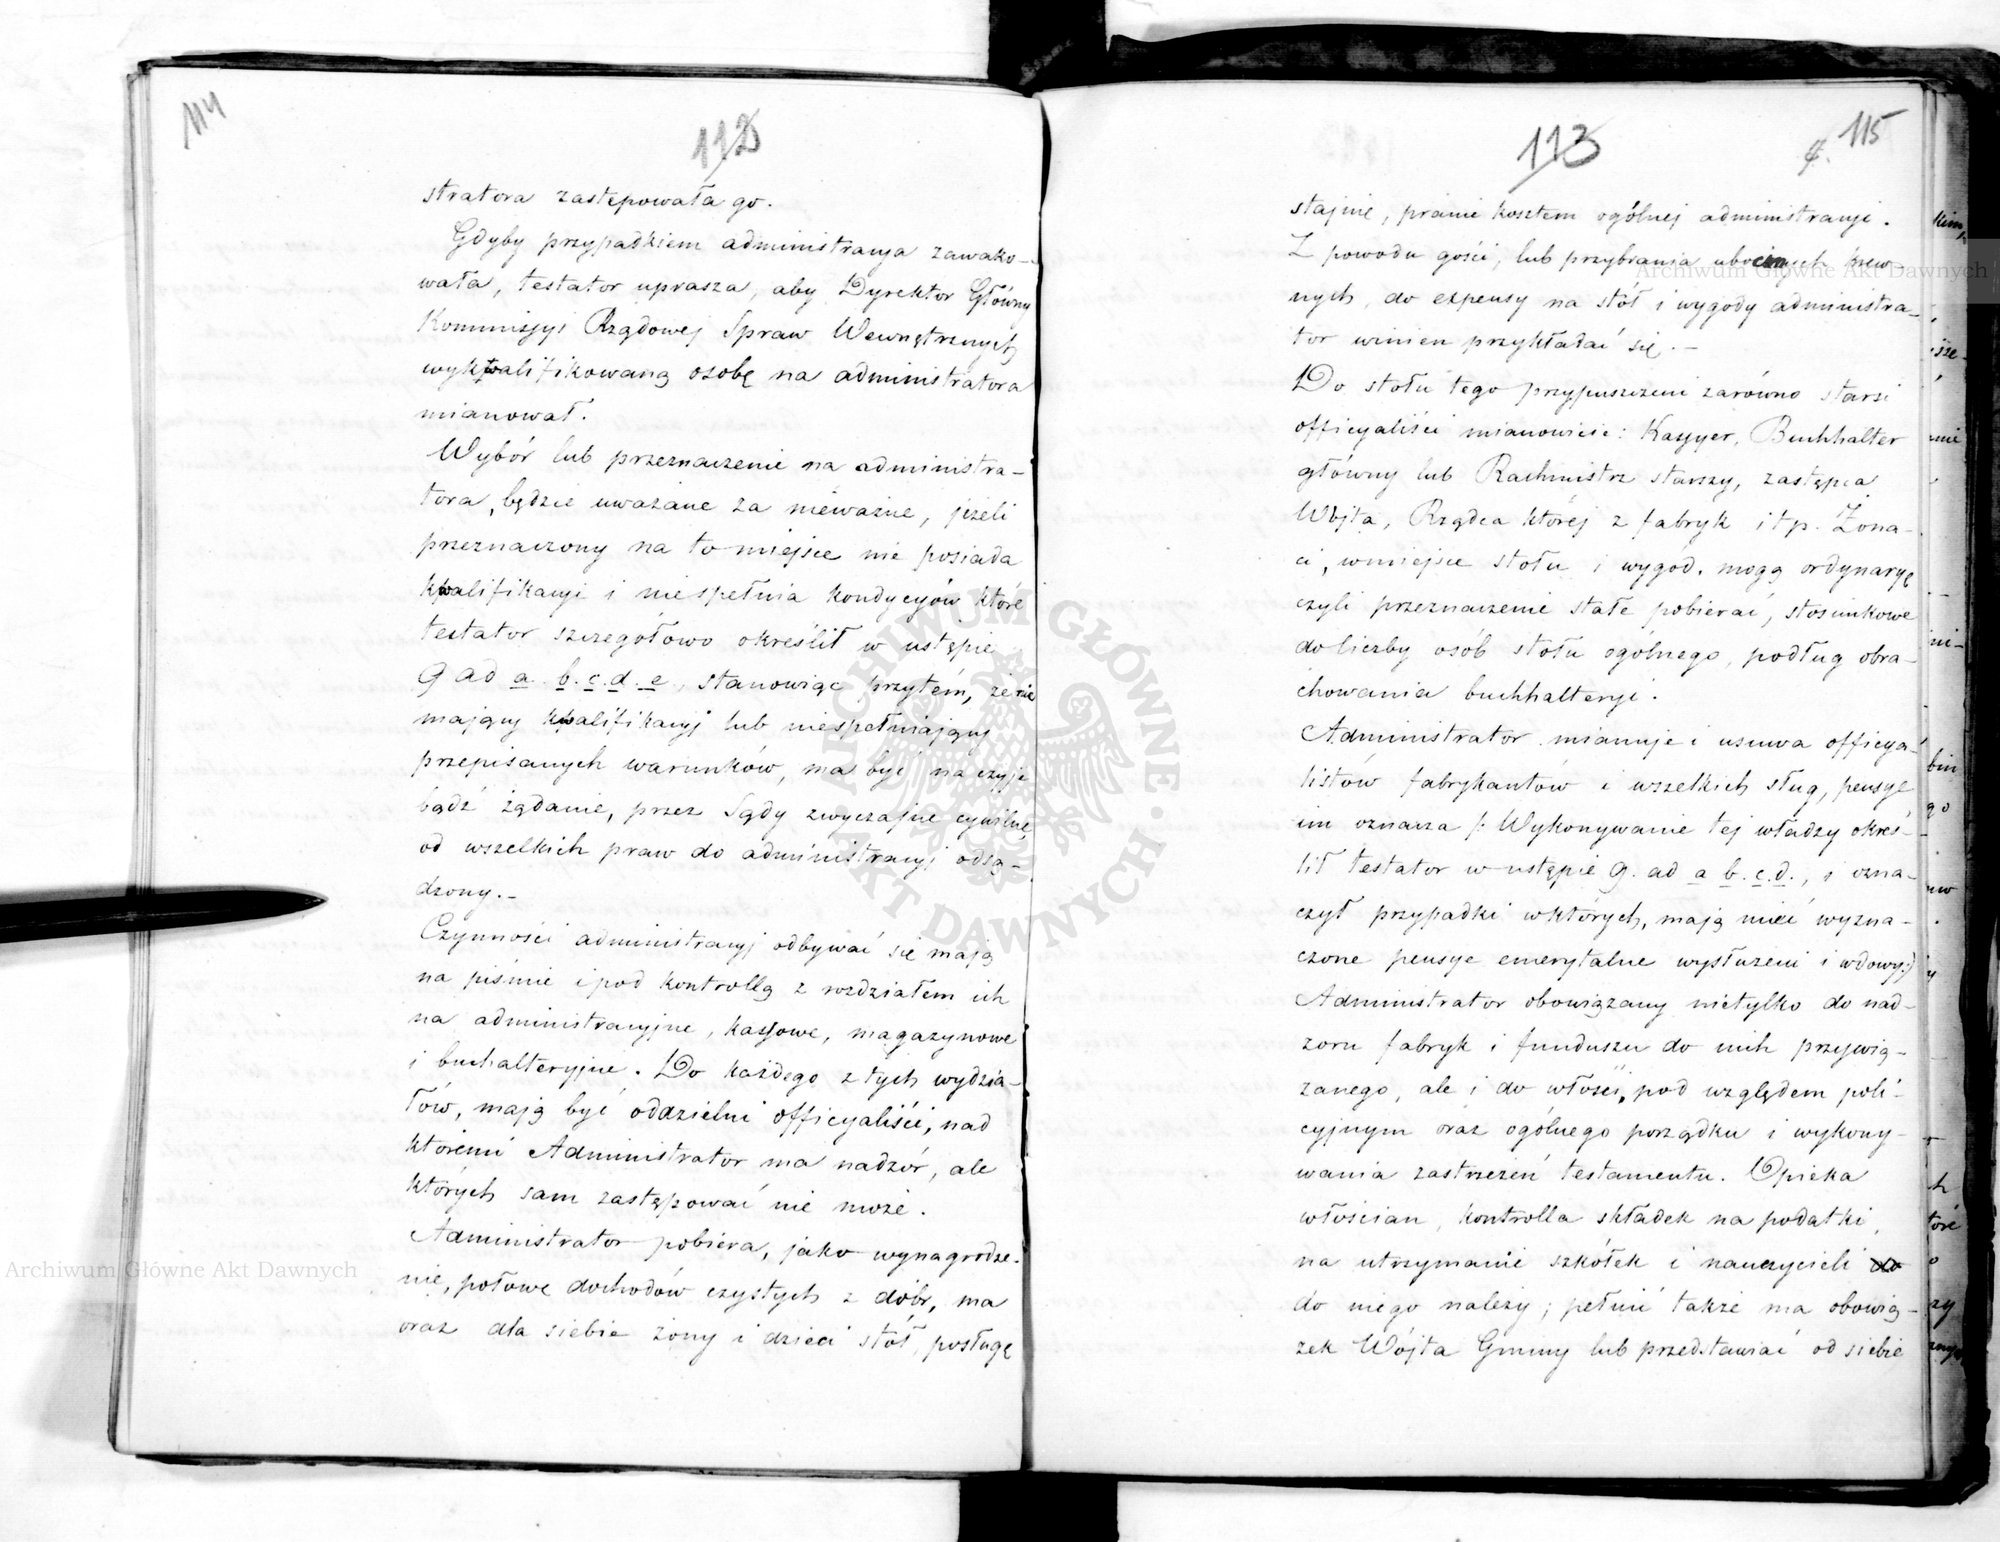 114
112
stratora zastępowała go.
Gdyby przypadkiem administracya zawako-
wała, testator uprasza, aby Dyrektor Główny
Kommissyi Rządowej Spraw Wewnętrznych
wykwalifikowaną osobę na administratora
mianował.
Wybór lub przeznaczenie na administra-
tora, będzie uważane za nieważne, jeżeli
przeznaczony na to miejsce nie posiada
kwalifikacyi i niespełnia kondycyów które
testator szczegołowo określił w ustępie
9 ad a. b. c. d. e, stanowiąc przytém, że nie
mający kwalifikacyj lub niespełniający
przepisanych warunków, ma być na czyje
bądź żądanie, przez Sądy zwyczajne cywilne,
od wszelkich praw do administracyj odsą-
dzony.-
Czynności administracyj odbywać się mają
na piśmie i pod kontrollą z rozdziałem ich
na administracyjne, kassowe, magazynowe
i buchalteryjne. Do każdego z tych wydzia-
łów, mają być oddzielni officyaliści, nad
któremi Administrator ma nadzór, ale
których sam zastępować nie może.
Administrator pobiera, jako wynagrodze-
nie, połowę dochodów czystych z dóbr, ma
oraz dla siebie żony i dzieci stół, posługę
113
115
stajnie, pranie kosztem ogólnej administracyi.
Z powodu gości, lub przybrania ubocznych krew-
nych, do expensy na stół i wygody administra-
tor winien przykładać się.-
Do stołu tego przypuszczeni zarówno starsi
officyaliści mianowicie: Kassyer, Buchhalter
główny lub Rachmistrz starszy, zastępca
Wójta, Rządca której z fabryk i t p. Żona-
ci, wmiejsce stołu i wygod. mogą ordynaryę
czyli przeznaczenie stałe pobierać, stosunkowe
do liczby osób stołu ogólnego, podług obra-
chowania buchhalteryi.
Administrator mianuje i usuwa officya-
listów fabrykantów i wszelkich sług, pensye
im oznacza /: Wykonywanie tej władzy okreś-
lił testator w ustępie 9. ad a b. c. d., i ozna-
czył przypadki wktórych, mają mieć wyzna-
czone pensye emerytalne wysłużeni i wdowy:/
Administrator obowiązany nietylko do nad-
zoru fabryk i funduszu do nich przywią-
zanego, ale i do włości, pod względem poli-
cyjnym oraz ogólnego porządku i wykony-
wania zastrzeżeń testamentu. Opieka
włościan, kontrolla składek na podatki,
na utrzymanie szkółek i nauczycieli do
do niego należy; pełnić także ma obowią-
zek Wójta Gminy lub przedstawiać od siebie
Archiwum Główne Akt Dawnych
Archiwum Główne Akt Dawnych
ARCHIWUM GŁÓWNE AKT DAWNYCH